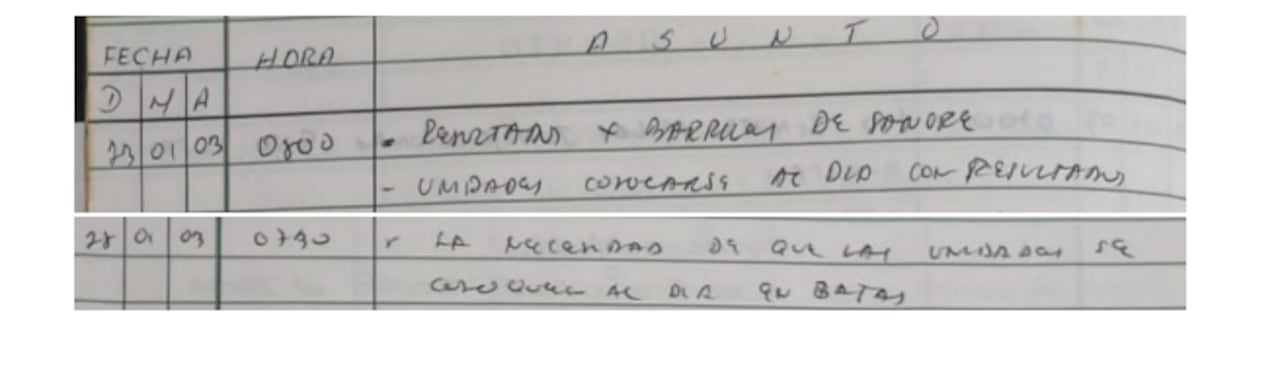 FECHA HORA ASUNTO
D M A
23 01 03 0800 - RESULTADOS Y BARRILES DE SANGRE
- UNIDADES COLOCARSE AL DIA CON RESULTADOS
28 01 03 0730 - LA NECESIDAD DE QUE LAS UNIDADES SE
COLOQUEN AL DIA EN BAJAS